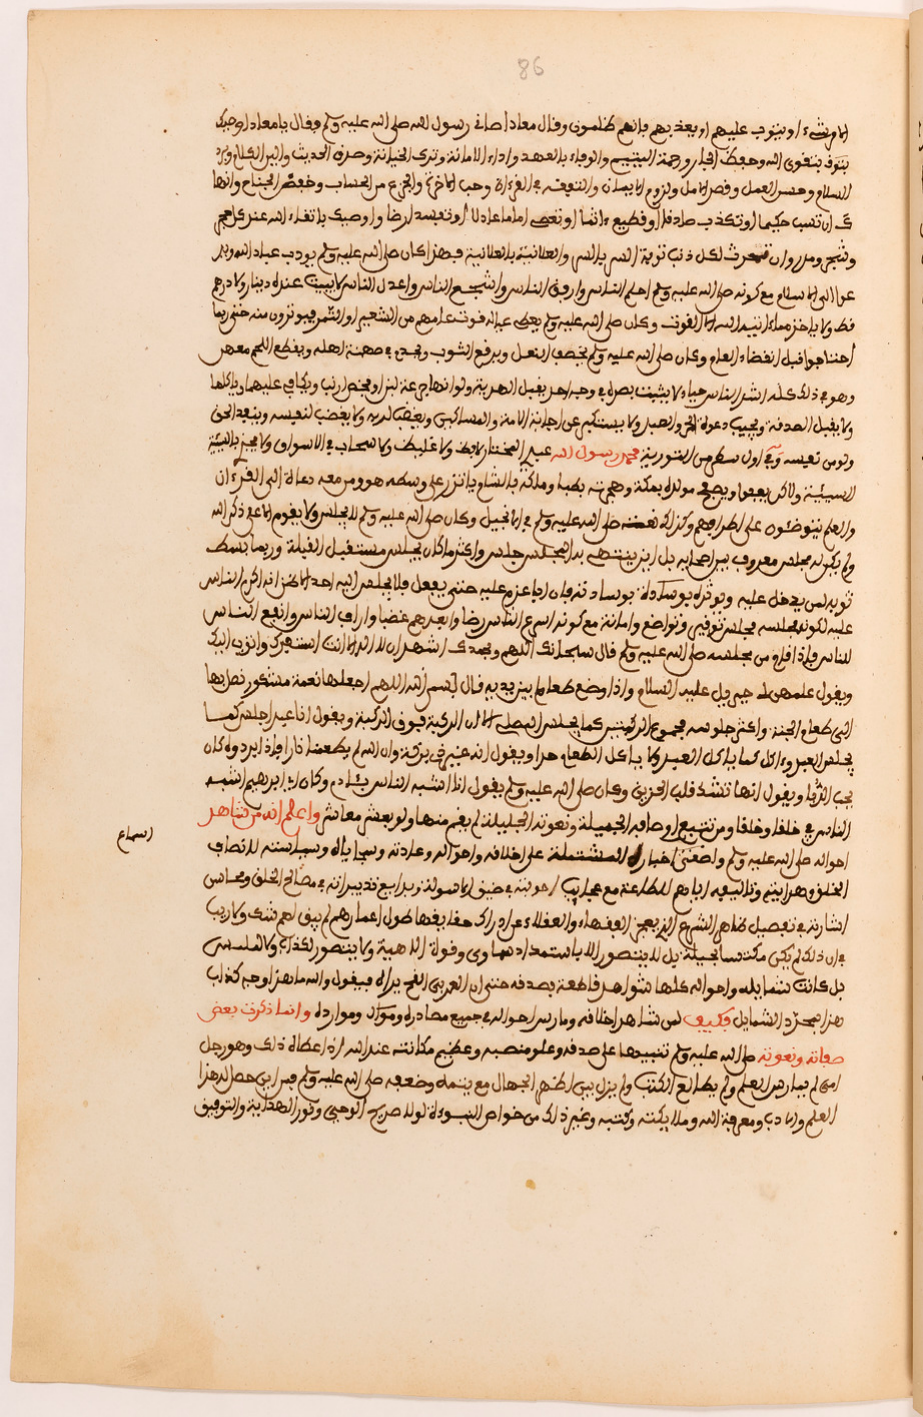 86
او يتوب عليهم او يعذبهم بانهم ظلمون وقال معاذ اوصاني رسول الله صلى الله عليه وسلم فقال يا معاذ اوصيك
بتقوى الله وحفظ الجار ورحمة اليتيم والوفاء بالعهد واداء الامانة وترك الخيانة وصدق الحديث ولين الكلام
السلام وحسن العمل وقصر الامل ولزوم الايمان والتفقه في القرءان وحب الاخرة والجزع من الحساب وخفض الجناح وانها
ك ان تسب حكيما او تكذب صادقا او تطيع ءاثما او تعصي اماما عادلا او تفسد ارضا واوصيك باتقاء الله عند كل حجر
وشجر ومدر وان تحدث لكل ذنب توبة السر بالسر والعلانية بالعلانية فهكذا كان صلى الله عليه وسلم يودب عباد الله
صلى الله عليه وسلم احلم الناس وارفق الناس واشجع الناس واعدل الناس لا يبيت عنده دينار ولا درهم
قط ولا ياخذ مما ءاتيه الله الا القوت وكان صلى الله عليه وسلم يعطي عياله قوت عامهم من الشعير او التمر فيوثرون منه حتى ربما
احتاجوا قبل انقضاء العام وكان صلى الله عليه وسلم يخصف النعل ويرفع الثوب في مهنة اهله ويقطع اللحم معهن
وهو في ذلك كله اشد الناس حياء لا يثبت بصره في وجه احد يقبل الهدية ولو انها جرعة لبن او فخذ ارنب ويكافي عليها وياكلها
ولا يقبل الصدقة ويجيب دعوة الحر والعبد ولا يستكبر عن اجابة الامة والمسكين ويغضب لربه ولا يغضب لنفسه وينفذ الحق
محمد رسول الله عبدي المختار لا فظ ولا غليظ ولا سخاب في الاسواق ولا يجزي بالسيئة
السيئة ولاكن يعفوا ويصفح مولده بمكة وهجرته بطيبا وملكه بالشام ياتزر على وسطه هو ومن معه دعاة الى القرءان
والعلم يتوضئون على اطرافهم وكذلك نعته صلى الله عليه وسلم في الانجيل وكان صلى الله عليه وسلم لا يجلس ولا يقوم الا على ذكر الله
ولم يكن له مجلس معروف بين اصحابه بل اين ينتهي به المجلس جلس واكثر ما كان يجلس مستقبل القبلة وربما بسط
ثوبه لمن يدخل عليه
عليه لكونه مجلسه مجلس توقير وتواضع وامانة مع كونه اسرع الناس رضا وابعدهم غضبا وارأف الناس وانفع الناس
للناس واذا قام من مجلسه صلى الله عليه وسلم قال سبحانك اللهم وبحمدك اشهد ان لا اله الا انت استغفرك واتوب اليك
ويقول علمهن لي جبريل عليه السلام واذا وضع طعام بين يديه قال بسم الله اللهم اجعلها نعمة مشكورة تصل بها
الى طعام الجنة
يجلس العبد وءاكل كما ياكل العبد ولا ياكل الطعام حرا ويقول انه غير ذي بركة وان الله لم يطعمنا نارا
ويقول انها تشد قلب الحزين وكان صلى الله عليه وسلم يقول انا اشبه الناس بئادم وكان ابراهيم اشبه
الناس بي خلقا وخلقا ومن تتبع اوصافه الجميلة ونعوته الجليلة واعلم انه من شاهد
اسماع
احواله صلى الله عليه وسلم واصغى اخباره المشتملة على اخلاقه واحواله وعادته وسجاياه وسياسته لاصناف
الخلق وهدايتهم وتاليفه اياهم للطاعة مع عجايب اجوبته في ضيق الاسولة وبدايع تدبيراته في مصالح الخلق ومحاسن
اشارته في تفصيل ظاهر الشرع الذي يعجز الفقهاء والعقلاء عن ادراك حقايقها طول اعمارهم لم يبق لهم شك ولا ريب
في ان ذلك لم يكن مكتسبا بحيلة بل لا يتصور الا باستمداد سماوي وقوة الاهية ولا يتصور لكذاب ولا ملبس
بل كانت شمايله واحواله كلها شواهد قاطعة بصدقه حتى ان العربي القح يراه فيقول والله ما هذا وجه كذاب
هذا بمجرد الشمايل فكيف لمن شاهد اخلاقه ومارس احواله في جميع مصادره وموارده وانما ذكرت بعض
صفاته ونعوته صلى الله عليه وسلم تنبيها على صدقه وعلو منصبه وعظيم مكانته عند الله اذ اعطاه ذلك وهو رجل
امي لم يمارس العلم ولم يطالع الكتب ولم يزل بين اظهر الجهال مع يتمه وضعفه صلى الله عليه وسلم فمن اين حصل له هذا
العلم والادب ومعرفة الله وملايكته وكتبه وغير ذلك من خواص النبوءة لولا صريح الوحي ونور الهداية والتوفيق